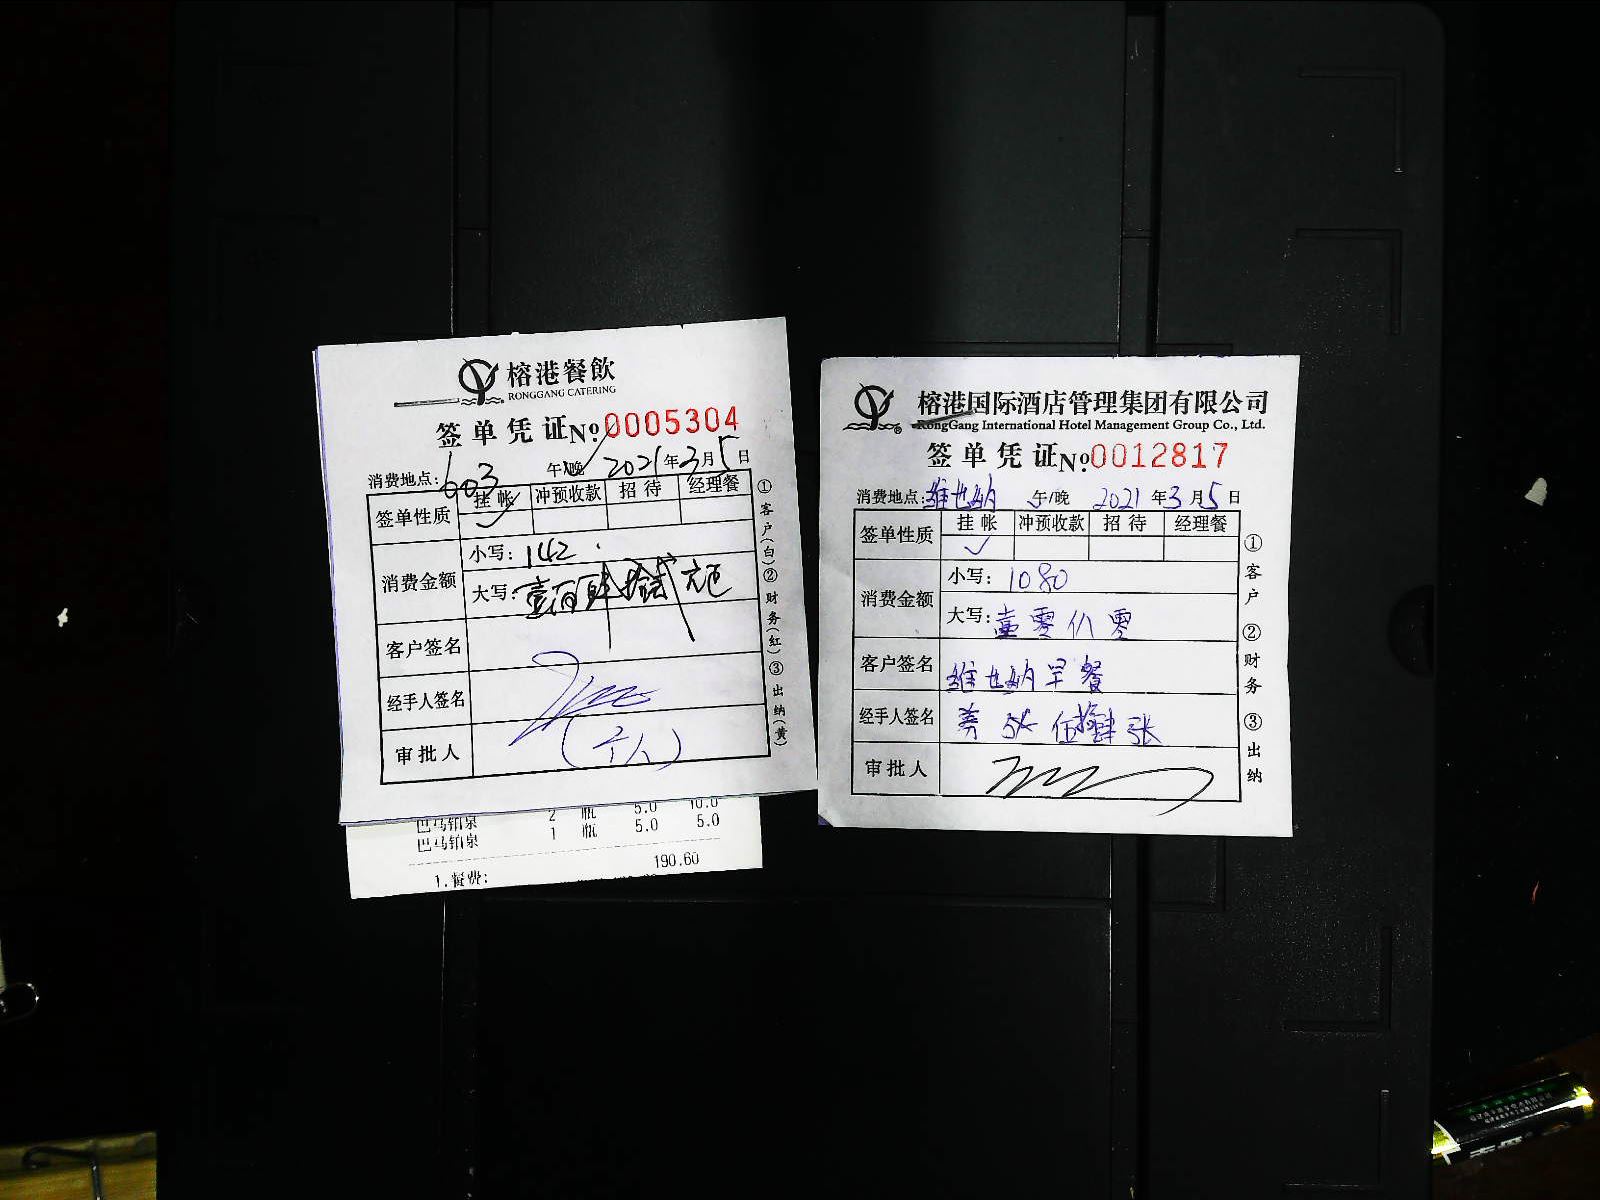 榕港餐飲
RONGGANG CATERING
签单凭证 №0005304
消费地点: 603 午/晚 2021年3月5日
签单性质 挂帐 冲预收款 招待 经理餐
✓
消费金额 小写: 142
大写: 壹佰肆拾贰元
客户签名
经手人签名
审批人 (个人)
①客户(白)②财务(红)③出纳(黄)
巴马铂泉 2 瓶 5.0 10.0
巴马铂泉 1 瓶 5.0 5.0
190.60
1.餐费:
榕港国际酒店管理集团有限公司
RongGang International Hotel Management Group Co., Ltd.
签单凭证 №0012817
消费地点: 维也纳 午/晚 2021年3月5日
签单性质 挂帐 冲预收款 招待 经理餐
✓
消费金额 小写: 1080
大写: 壹零八零
客户签名 维也纳早餐
经手人签名 伍拾肆张
审批人
①客户 ②财务 ③出纳